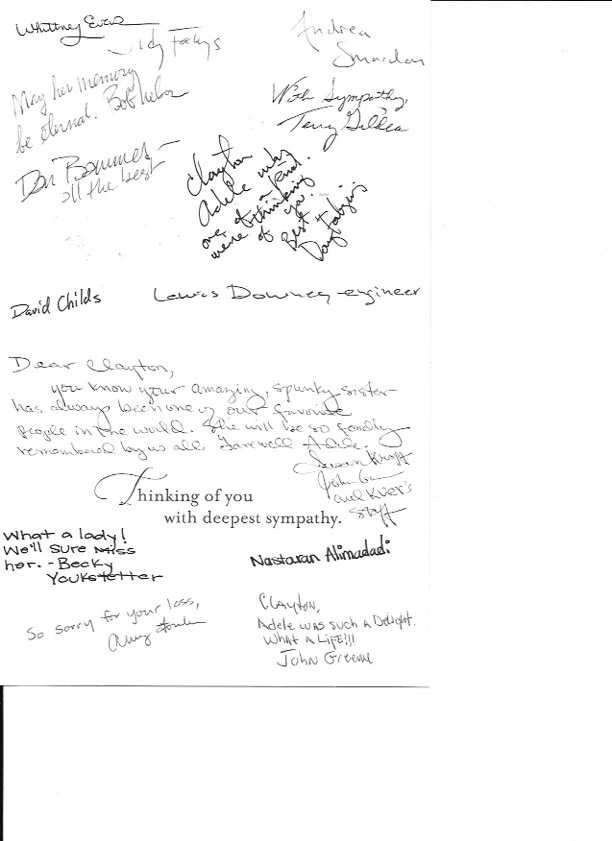 Whittney Evans
Judy Fahys
Andrea
Smardon
May her memory
be eternal. Bob Nelson
With Sympathy,
Terry Gildea
Don Bammes –
all the best
Clayton
Adele was
one of a kind.
we're thinking
of ya.
Best
Doug Fabrizio
David Childs
Lewis Downey – engineer
Dear Clayton,
you know your amazing, spunky sister
has always been one of our favorite
people in the world. She will be so fondly
remembered by us all. Farewell Adele.
Susan Kropf
John
and KUER's
staff
Thinking of you
with deepest sympathy.
What a lady!
We'll sure miss
her. - Becky
Youkstetter
Nastaran Alimadadi
So sorry for your loss,
Amy
Clayton,
Adele was such a Delight.
What a Life!!!
John Greene